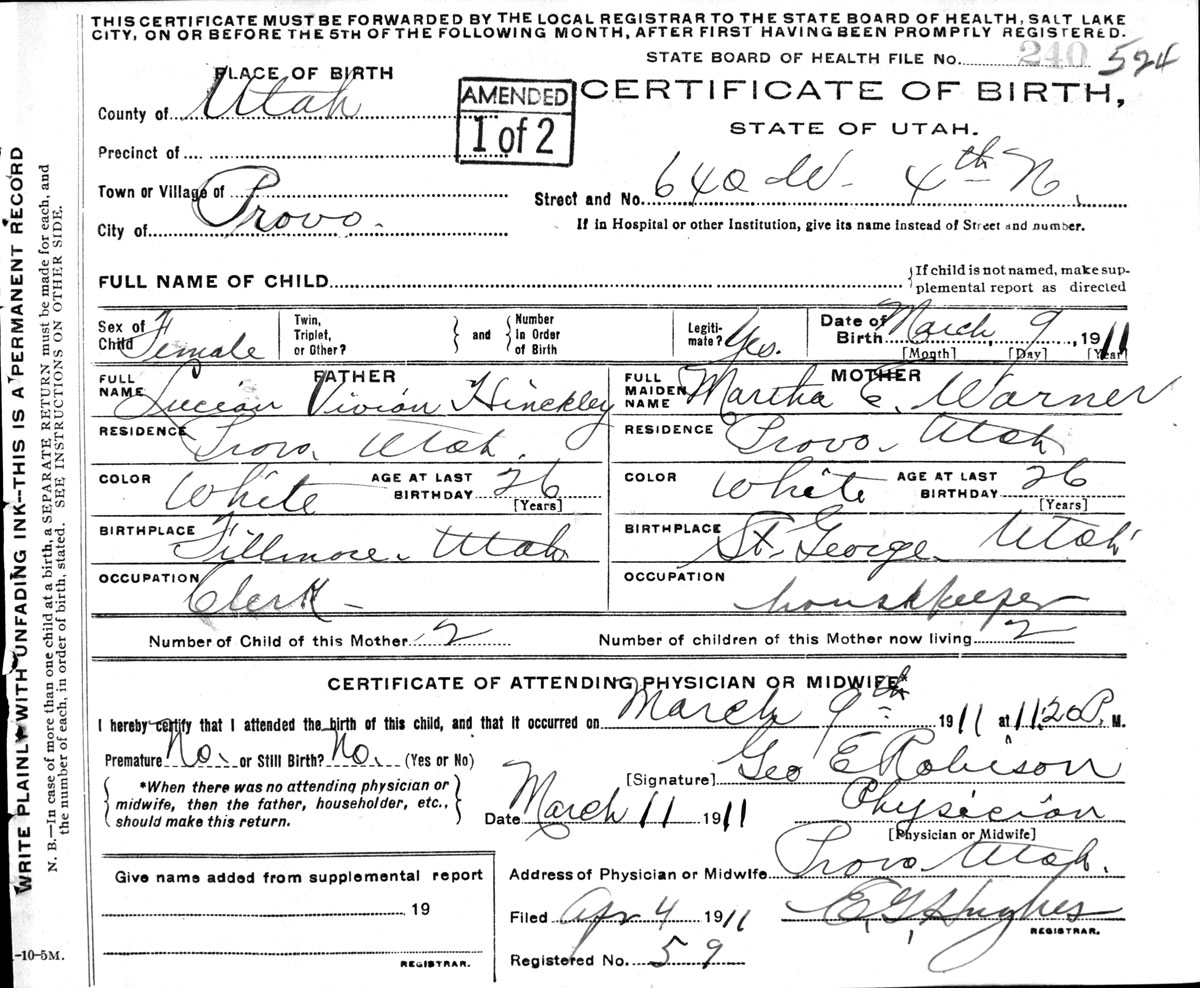 THIS CERTIFICATE MUST BE FORWARDED BY THE LOCAL REGISTRAR TO THE STATE BOARD OF HEALTH, SALT LAKE
CITY, ON OR BEFORE THE 5TH OF THE FOLLOWING MONTH, AFTER FIRST HAVING BEEN PROMPTLY REGISTERED.
STATE BOARD OF HEALTH FILE No. 240 524
PLACE OF BIRTH
CERTIFICATE OF BIRTH,
STATE OF UTAH.
AMENDED
1 of 2
County of Utah
Precinct of
Town or Village of
City of Provo.
Street and No. 640 W. 4th N.
If in Hospital or other Institution, give its name instead of Street and number.
FULL NAME OF CHILD
If child is not named, make sup-
plemental report as directed
Sex of Child Female
Twin, Triplet, or Other?
and
Number In Order of Birth
Legiti-mate? Yes.
Date of Birth March 9, 1911
[Month] [Day] [Year]
FATHER
FULL NAME Lucian Vivian Hinckley
RESIDENCE Provo, Utah.
COLOR White AGE AT LAST BIRTHDAY 26
[Years]
BIRTHPLACE Fillmore, Utah
OCCUPATION Clerk
MOTHER
FULL MAIDEN NAME Martha E. Warner
RESIDENCE Provo Utah
COLOR White AGE AT LAST BIRTHDAY 26
[Years]
BIRTHPLACE St. George Utah
OCCUPATION housekeeper
Number of Child of this Mother 2 Number of children of this Mother now living 2
CERTIFICATE OF ATTENDING PHYSICIAN OR MIDWIFE*
I hereby certify that I attended the birth of this child, and that it occurred on March 9th 1911 at 11:20 P. M.
Premature No. or Still Birth? No. (Yes or No)
*When there was no attending physician or
midwife, then the father, householder, etc.,
should make this return.
[Signature] Geo E Robison
Date March 11 1911
Physician
[Physician or Midwife]
Address of Physician or Midwife Provo Utah.
Filed Apr 4 1911 E. G. Hughes
REGISTRAR.
Registered No. 59
Give name added from supplemental report
19
REGISTRAR.
WRITE PLAINLY WITH UNFADING INK—THIS IS A PERMANENT RECORD
N. B.—In case of more than one child at a birth, a SEPARATE RETURN must be made for each, and
the number of each, in order of birth, stated. SEE INSTRUCTIONS ON OTHER SIDE.
-10-5M.